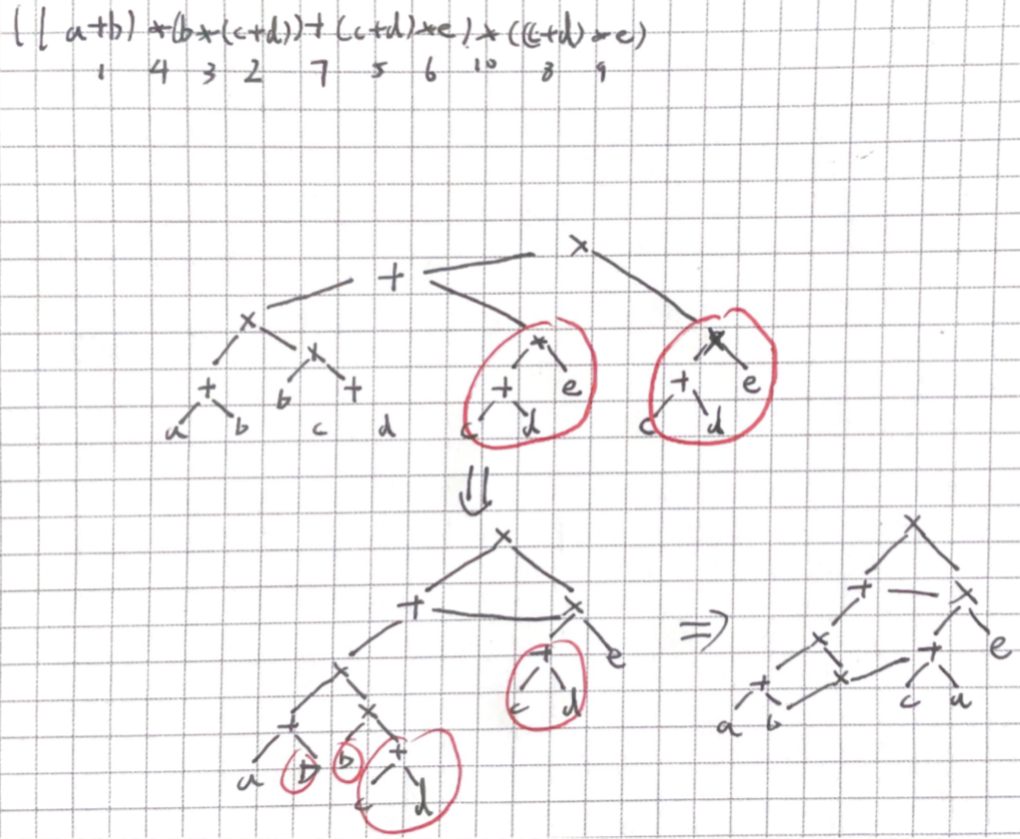 ((a+b)*(b*(c+d))+(c+d)*e)*((c+d)*e)
1 4 3 2 7 5 6 10 8 9
×
+
×
× * *
+ b + + e + e
a b c d c d c d
⇓
×
+ × ⇒
+ e
×
+ ×
a b b +
c d
×
+ ×
× + e
+ × c d
a b